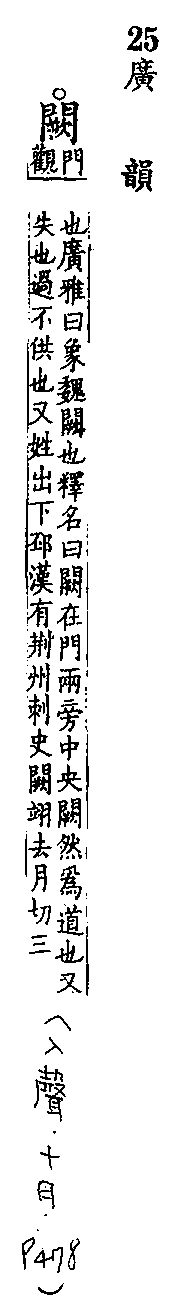 25
廣韻
○闕 門觀
也廣雅曰象魏闕也釋名曰闕在門兩旁中央闕然爲道也又
失也過不供也又姓出下邳漢有荆州刺史闕翊去月切三
(入聲.十月.P478)